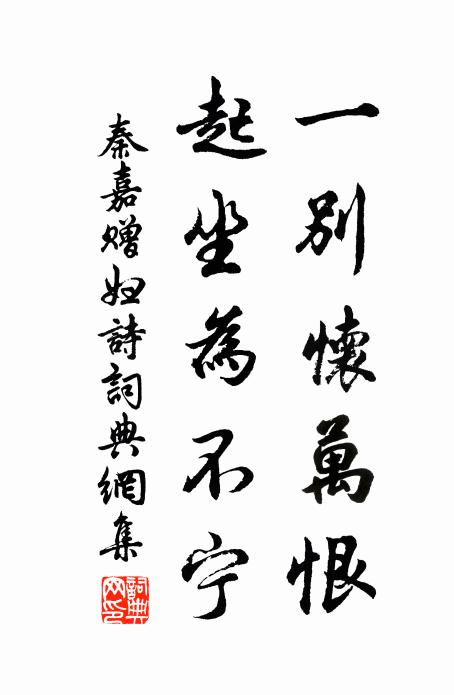 一別懷萬恨
起坐為不宁
秦嘉贈妇詩詞典網集
詞典網印